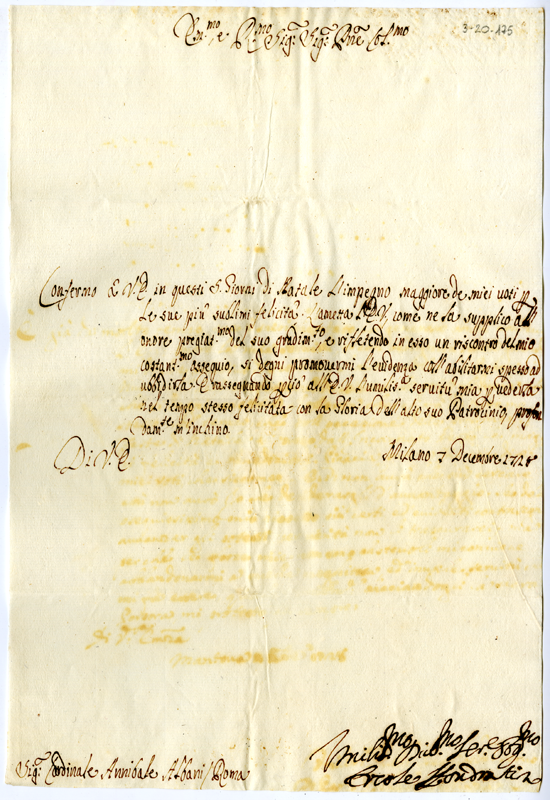 3-20-175
Em.mo, e R.mo Sig.r Sig.r Pne Col.mo
Confermo à V.E. in questi S. Giorni di Natale l'impegno maggiore de miei voti p
le sue più sublimi felicità. l'ametta l'E.V. come ne la supplico all'
onore pregiat.mo del suo gradim.to, e riflettendo in esso un riscontro del mio
costant.mo assequio, si degni promovermi l'evidenza coll'abilitarmi spesso ad
ubbidirla. E rassegnando all'E.V. l'umilis.a servitù mia
nel tempo stesso felicitata con la Gloria dell'alto suo Patrocinio, profon
dam.te m'inchino.
Di V.E. Milano 7 Decembre
Umilis.mo Dib.mo Ser.e
Ercole
Sig.r Cardinale Annibale Albani / Roma